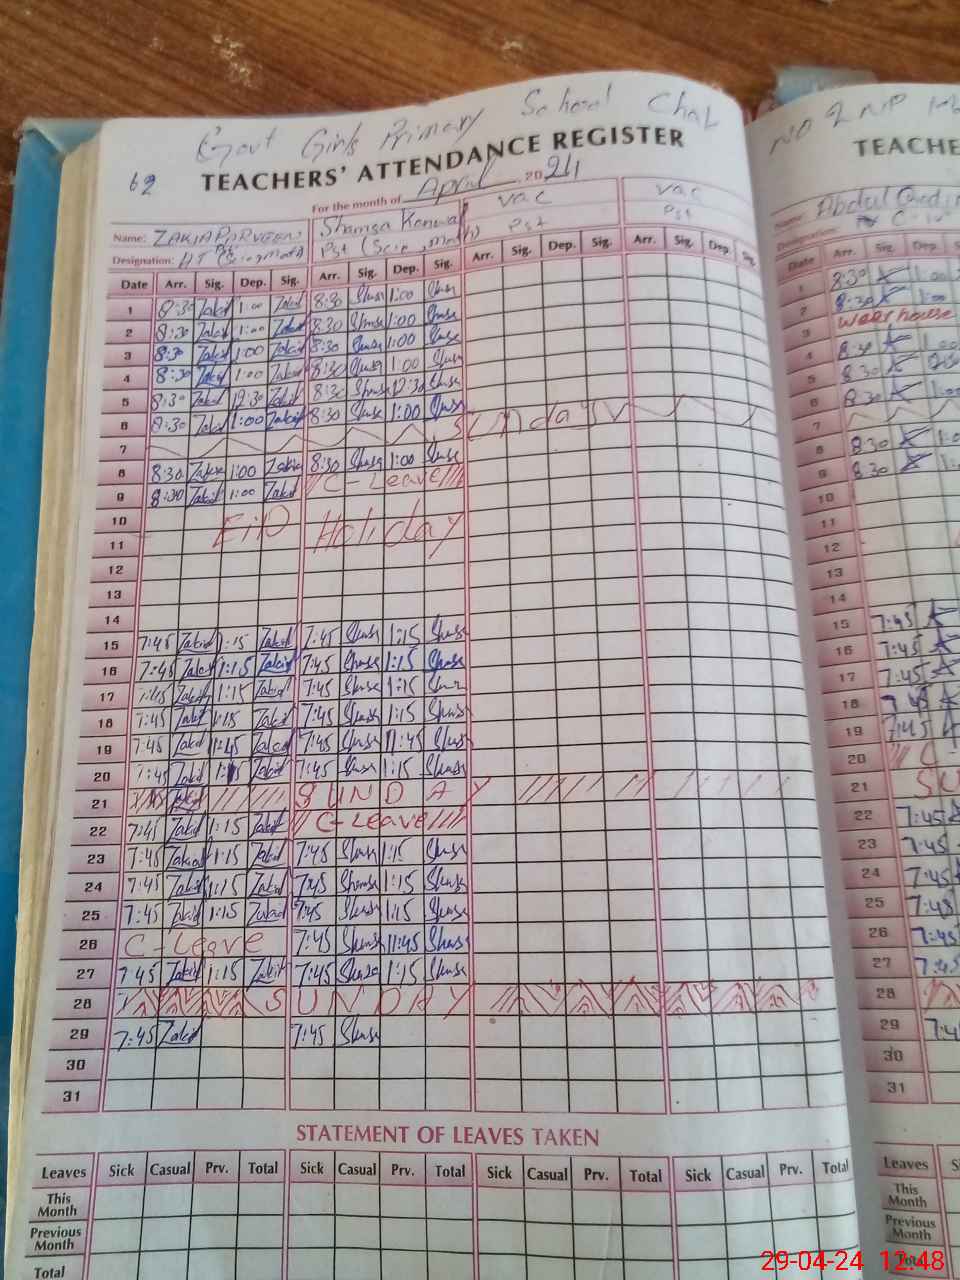 Govt Girls Primary School Chak
62 TEACHERS' ATTENDANCE REGISTER
For the month of April 2024
Name: ZAKIA PARVEEN Shamsa Kanwal Vac Vac
Designation: Pst (Scie, Math) Pst Pst
Date Arr. Sig. Dep. Sig. Arr. Sig. Dep. Sig. Arr. Sig. Dep. Sig. Arr. Sig. Dep. Sig.
1 8:30 Zakia 1:00 Zakia 8:30 Shmsa 1:00 Shmsa
2 8:30 Zakia 1:00 Zakia 8:30 Shmsa 1:00 Shmsa
3 8:30 Zakia 1:00 Zakia 8:30 Shmsa 1:00 Shmsa
4 8:30 Zakia 1:00 Zakia 8:30 Shmsa 1:00 Shmsa
5 8:30 Zakia 12:30 Zakia 8:30 Shmsa 12:30 Shmsa
6 8:30 Zakia 1:00 Zakia 8:30 Shmsa 1:00 Shmsa
7 Sunday
8 8:30 Zakia 1:00 Zakia 8:30 Shmsa 1:00 Shmsa
9 8:30 Zakia 1:00 Zakia C-Leave
10 EiD Holiday
11
12
13
14
15 7:45 Zakia 1:15 Zakia 7:45 Shmsa 1:15 Shmsa
16 7:45 Zakia 1:15 Zakia 7:45 Shmsa 1:15 Shmsa
17 7:45 Zakia 1:15 Zakia 7:45 Shmsa 1:15 Shmsa
18 7:45 Zakia 1:15 Zakia 7:45 Shmsa 1:15 Shmsa
19 7:45 Zakia 11:45 Zakia 7:45 Shmsa 11:45 Shmsa
20 7:45 Zakia 1:15 Zakia 7:45 Shmsa 1:15 Shmsa
21 SUNDAY
22 7:45 Zakia 1:15 Zakia C-Leave
23 7:45 Zakia 1:15 Zakia 7:45 Shmsa 1:15 Shmsa
24 7:45 Zakia 1:15 Zakia 7:45 Shmsa 1:15 Shmsa
25 7:45 Zakia 1:15 Zakia 7:45 Shmsa 1:15 Shmsa
26 C-Leave 7:45 Shmsa 11:45 Shmsa
27 7:45 Zakia 1:15 Zakia 7:45 Shmsa 1:15 Shmsa
28 SUNDAY
29 7:45 Zakia 7:45 Shmsa
30
31
STATEMENT OF LEAVES TAKEN
Leaves Sick Casual Prv. Total Sick Casual Prv. Total Sick Casual Prv. Total Sick Casual Prv. Total
This Month
Previous Month
Total
NO 2 NP
TEACHE
Name: Abdul
Designation:
Date Arr. Sig. Dep.
1 8:30 1:00
2 8:30 1:00
3
4 8:30 1:00
5 8:30
6 8:30 1:00
7
8 8:30
9 8:30
10
11
12
13
14
15 7:45
16 7:45
17 7:45
18 7:45
19 7:45
20 C
21 SU
22 7:45
23 7:45
24 7:45
25 7:45
26 7:45
27 7:45
28
29 7:4
30
31
Leaves S
This Month
Previous Month
29-04-24 12:48